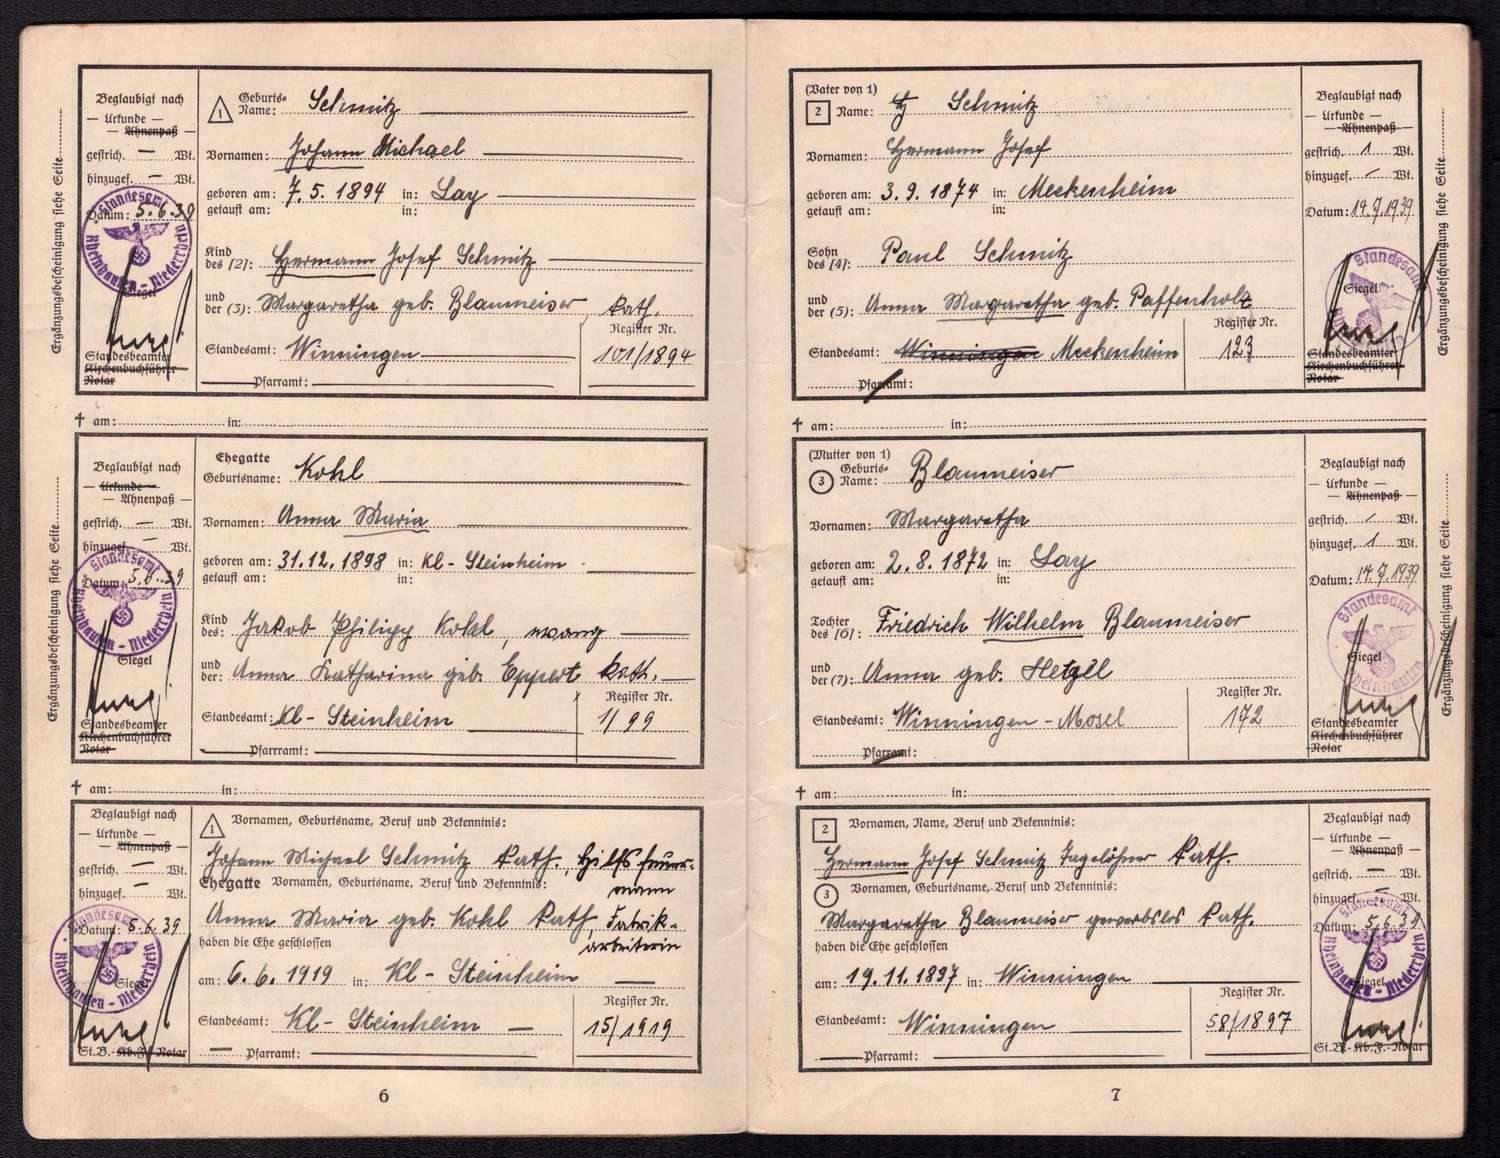 Beglaubigt nach
— Urkunde —
— Ahnenpaß —
gestrich. — Wt.
hinzugef. — Wt.
Datum: 5.6.39
Standesamt Rheinhausen - Niederrhein
Siegel
Standesbeamter
Kirchenbuchführer
Notar
Ergänzungsbescheinigung siehe Seite
1 Geburts-
Name: Schmitz
Vornamen: Johann Michael
geboren am: 7.5.1894 in: Lay
getauft am: in:
Kind
des [2]: Hermann Josef Schmitz
und
der (3): Margaretha geb. Blaumeiser, kath.
Standesamt: Winningen
Register Nr.
101/1894
Pfarramt:
† am: in:
Beglaubigt nach
— Urkunde —
— Ahnenpaß —
gestrich. — Wt.
hinzugef. — Wt.
Datum: 5.6.39
Standesamt Rheinhausen - Niederrhein
Siegel
Standesbeamter
Kirchenbuchführer
Notar
Ergänzungsbescheinigung siehe Seite
Ehegatte
Geburtsname: Kohl
Vornamen: Anna Maria
geboren am: 31.12.1898 in: Kl-Steinheim
getauft am: in:
Kind
des: Jakob Philipp Kohl, evang
und
der: Anna Katharina geb. Eppert kath.
Standesamt: Kl-Steinheim
Register Nr.
1/99
Pfarramt:
† am: in:
Beglaubigt nach
— Urkunde —
— Ahnenpaß —
gestrich. — Wt.
hinzugef. — Wt.
Datum: 5.6.39
Standesamt Rheinhausen - Niederrhein
Siegel
St.B.- Kb.F.- Notar
1 Vornamen, Geburtsname, Beruf und Bekenntnis:
Johann Michael Schmitz kath., Hilfsfeuer-
mann
Ehegatte Vornamen, Geburtsname, Beruf und Bekenntnis:
Anna Maria geb. Kohl kath, Fabrik-
arbeiterin
haben die Ehe geschlossen
am: 6.6.1919 in: Kl-Steinheim
Standesamt: Kl-Steinheim
Register Nr.
15/1919
Pfarramt:
6
(Vater von 1)
2 Name: Schmitz
Vornamen: Hermann Josef
geboren am: 3.9.1874 in: Meckenheim
getauft am: in:
Sohn
des [4]: Paul Schmitz
und
der (5): Anna Margaretha geb. Paffenholz
Standesamt: Winningen Meckenheim
Register Nr.
123
Pfarramt:
Beglaubigt nach
— Urkunde —
— Ahnenpaß —
gestrich. 1 Wt.
hinzugef. Wt.
Datum: 14.7.1939
Standesamt
Siegel
Standesbeamter
Kirchenbuchführer
Notar
Ergänzungsbescheinigung siehe Seite
† am: in:
(Mutter von 1)
3 Geburts-
Name: Blaumeiser
Vornamen: Margaretha
geboren am: 2.8.1872 in: Lay
getauft am: in:
Tochter
des [6]: Friedrich Wilhelm Blaumeiser
und
der (7): Anna geb. Hetzel
Standesamt: Winningen-Mosel
Register Nr.
172
Pfarramt:
Beglaubigt nach
— Urkunde —
— Ahnenpaß —
gestrich. Wt.
hinzugef. 1 Wt.
Datum: 14.7.1939
Standesamt Rheinhausen
Siegel
Standesbeamter
Kirchenbuchführer
Notar
Ergänzungsbescheinigung siehe Seite
† am: in:
2 Vornamen, Name, Beruf und Bekenntnis:
Hermann Josef Schmitz Tagelöhner kath.
3 Vornamen, Geburtsname, Beruf und Bekenntnis:
Margaretha Blaumeiser gewerbslos kath.
haben die Ehe geschlossen
am: 19.11.1897 in: Winningen
Standesamt: Winningen
Register Nr.
58/1897
Pfarramt:
Beglaubigt nach
— Urkunde —
— Ahnenpaß —
gestrich. — Wt.
hinzugef. — Wt.
Datum: 5.6.39
Standesamt Rheinhausen - Niederrhein
Siegel
St.B.- Kb.F.- Notar
7